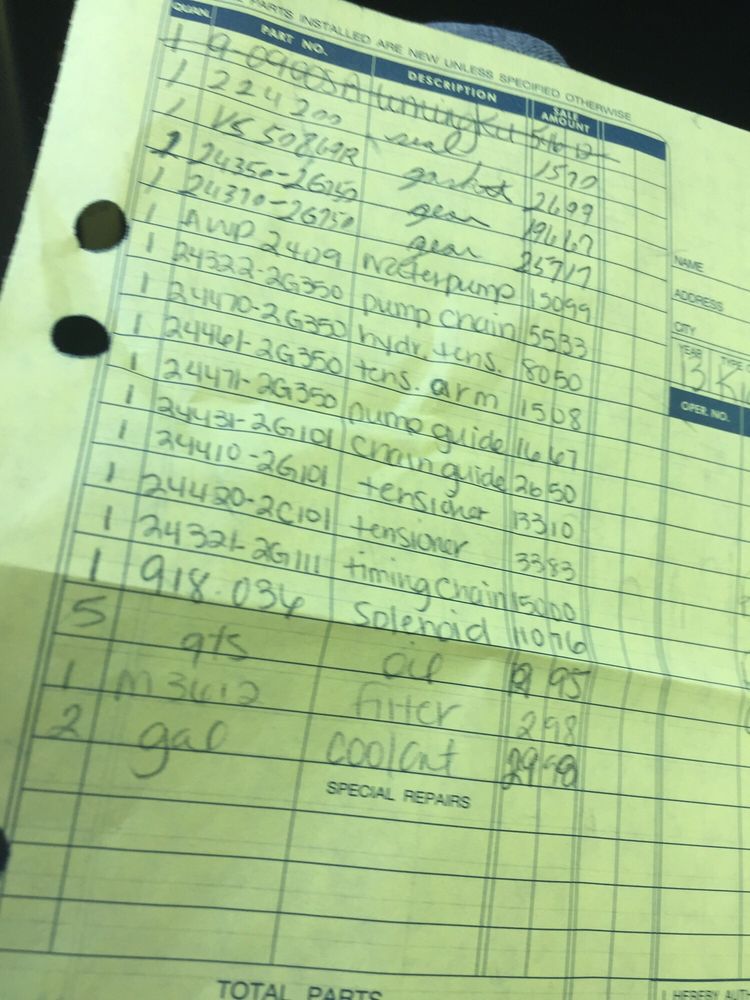 PARTS INSTALLED ARE NEW UNLESS SPECIFIED OTHERWISE
QUAN. PART NO. DESCRIPTION SALE AMOUNT
1 9-0900SA timing Kit
1 224200 seal 1570
1 VS50869R gasket 2699
1 24350-2G750 gear 19667
1 24370-2G750 gear 25717
1 AWP2409 waterpump 15099
1 24322-2G350 pump chain 5533
1 24470-2G350 hydr. tens. 8050
1 24461-2G350 tens. arm 1508
1 24471-2G350 pump guide 1667
1 24431-2G101 chain guide 2650
1 24410-2G101 tensioner 13310
1 24420-2C101 tensioner 3383
1 24321-2G111 timing chain 15000
1 918-034 Solenoid 11076
5 qts oil 9.95
1 M3612 filter 298
2 gal coolant 29.98
SPECIAL REPAIRS
TOTAL PARTS
NAME
ADDRESS
CITY
YEAR
13
OPER. NO.
I HEREBY